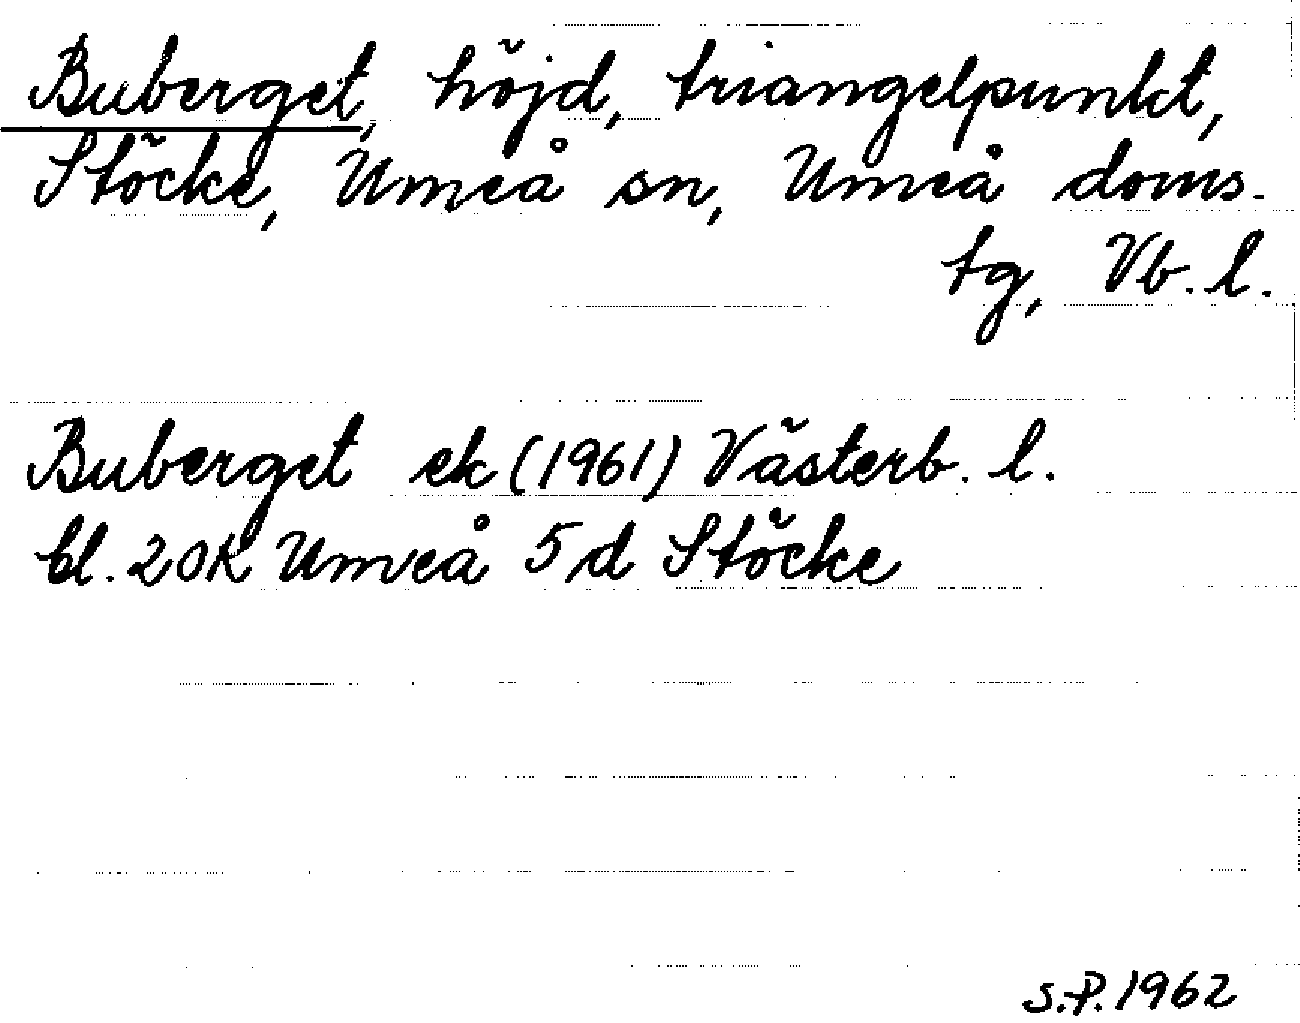 Buberget, höjd, triangelpunkt,
Stöcke, Umeå sn, Umeå doms.
tg, Vb. l.
Buberget ek (1961) Västerb. l.
bl. 20K Umeå 5d Stöcke
S.P. 1962